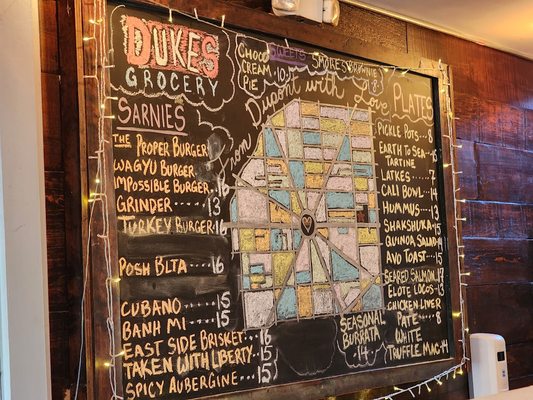 DUKES
GROCERY
SARNIES
THE PROPER BURGER
WAGYU BURGER
IMPOSSIBLE BURGER 16
GRINDER .... 13
TURKEY BURGER 16
POSH BLTA .... 16
CUBANO ..... 15
BANH MI ..... 15
EAST SIDE BRISKET 16
TAKEN WITH LIBERTY. 15
SPICY AUBERGINE ... 15
SWEETS
CHOCO SMORES BROWNIE
CREAM 10 8
PIE
From Dupont with Love
SEASONAL
BURRATA
14
PLATES
PICKLE POTS .. 8
EARTH TO SEA
TARTINE
LATKES .... 7
CALI BOWL . 14
HUMMUS .. 13
SHAKSHUKA 15
QUINOA SALAD
AVO TOAST . 15
SEARED SALMON
ELOTE LOCOS . 13
CHICKEN LIVER
PATE .... 8
WHITE
TRUFFLE MAC 14